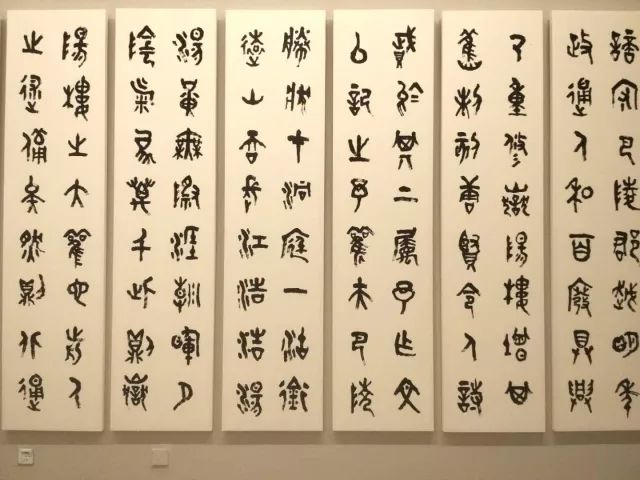 謫守巴陵郡越明年
政通人和百廢具興
乃重修嶽陽樓增其
舊制刻唐賢今人詩
賦於其上屬予作文
以記之予觀夫巴陵
勝狀在洞庭一湖銜
遠山吞長江浩浩湯
湯橫無際涯朝暉夕
陰氣象萬千此則嶽
陽樓之大觀也前人
之述備矣然則北通